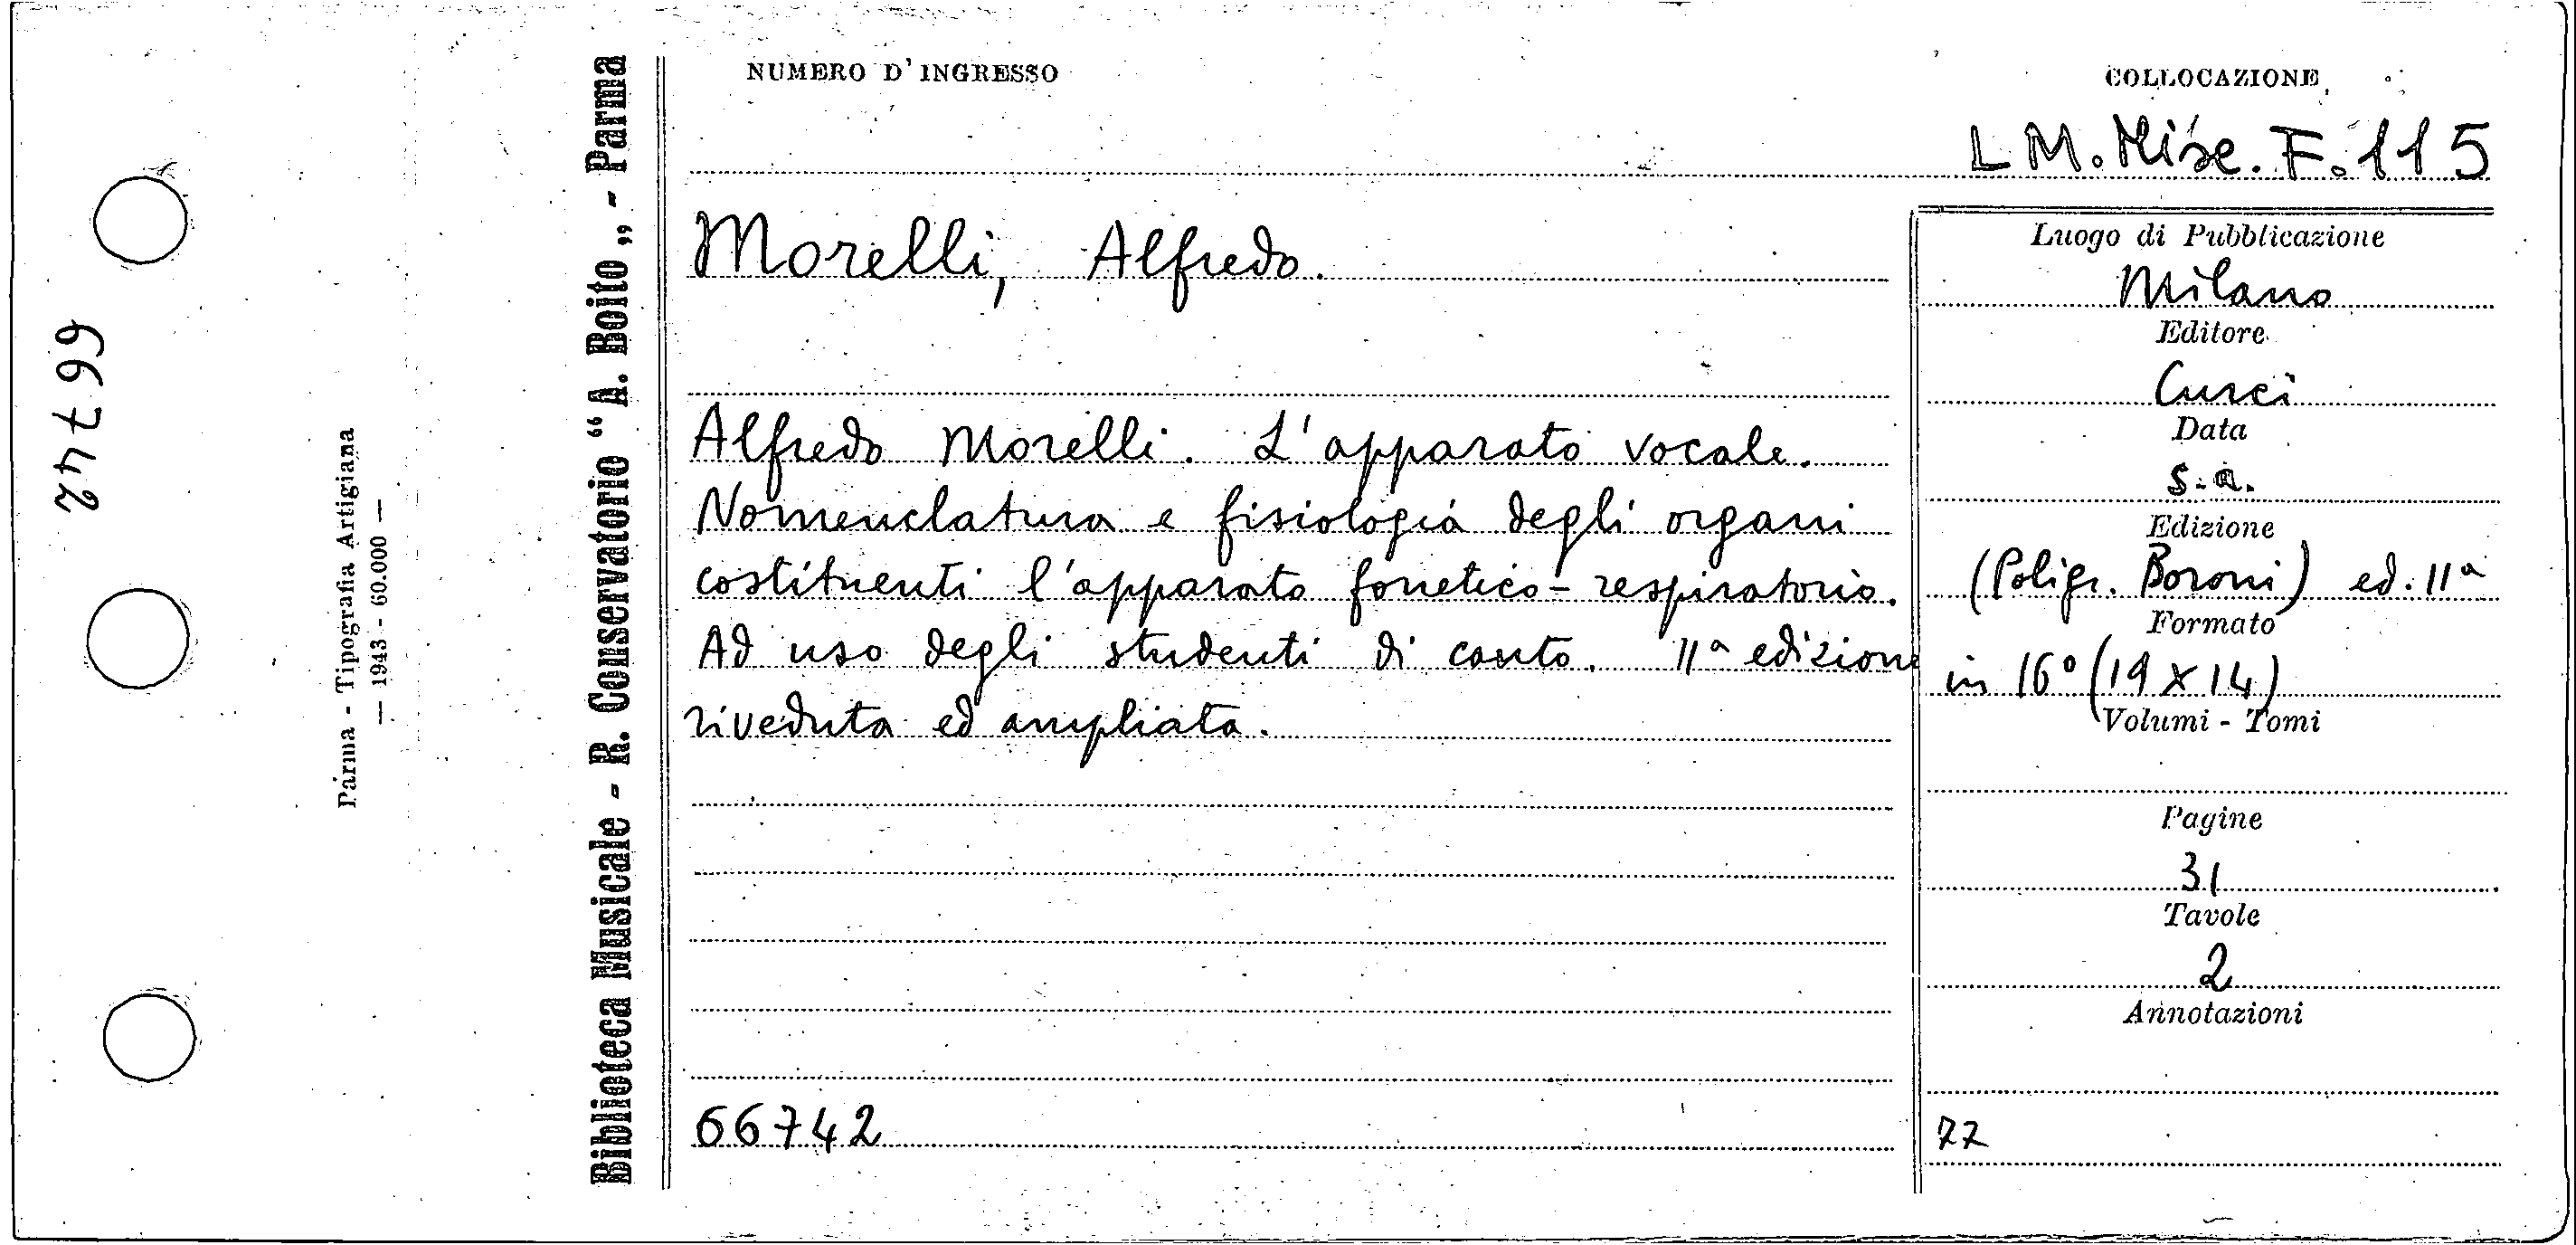 NUMERO D'INGRESSO
COLLOCAZIONE
LM. Misc. F. 115
Morelli, Alfredo.
Alfredo Morelli. L'apparato vocale.
Nomenclatura e fisiologia degli organi
costituenti l'apparato fonetico-respiratorio.
Ad uso degli studenti di canto. IIª edizione
riveduta ed ampliata.
66742
Luogo di Pubblicazione
Milano
Editore
Curci
Data
s.a.
Edizione
(Poligr. Boroni) ed. IIª
Formato
in 16° (19 x 14)
Volumi - Tomi
Pagine
31
Tavole
2
Annotazioni
Biblioteca Musicale - R. Conservatorio “A. Boito„ - Parma
Parma - Tipografia Artigiana
— 1943 - 60.000 —
66742